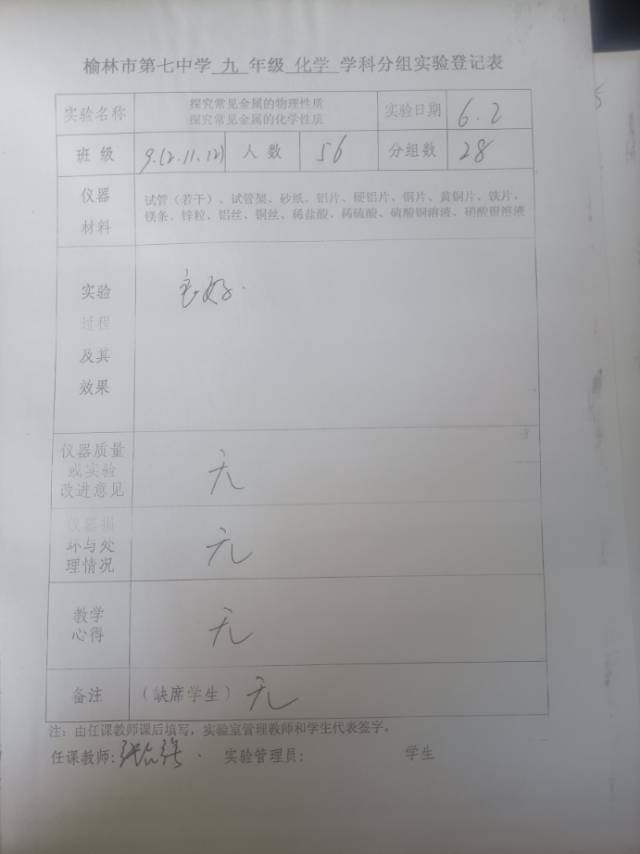 榆林市第七中学 九 年级 化学 学科分组实验登记表
实验名称 探究常见金属的物理性质 实验日期 6.2
探究常见金属的化学性质
班 级 9.(2.11.12) 人 数 56 分组数 28
仪器 试管（若干）、试管架、砂纸、铝片、硬铝片、铜片、黄铜片、铁片、
材料 镁条、锌粒、铝丝、铜丝、稀盐酸、稀硫酸、硫酸铜溶液、硝酸银溶液
实验 良好.
过程
及其
效果
仪器质量
或实验 无
改进意见
仪器损
坏与处 无
理情况
教学 无
心得
备注 （缺席学生）无
注：由任课教师课后填写，实验室管理教师和学生代表签字。
任课教师: 实验管理员: 学生